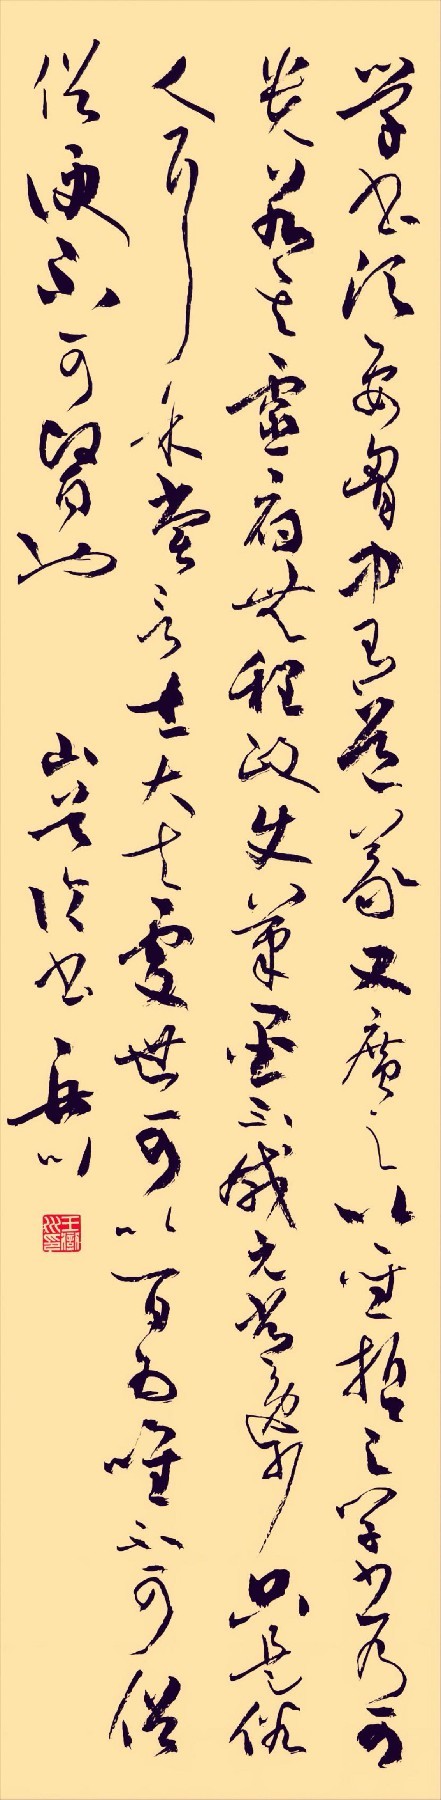 学书须要胸中有道义又廣之以聖哲之学书乃可
贵若其靈府無程政使筆墨不减元常逸少只是俗
人耳余嘗言士大夫處世可以百为唯不可俗
俗便不可醫也 山谷论书 岳川
王岳川印